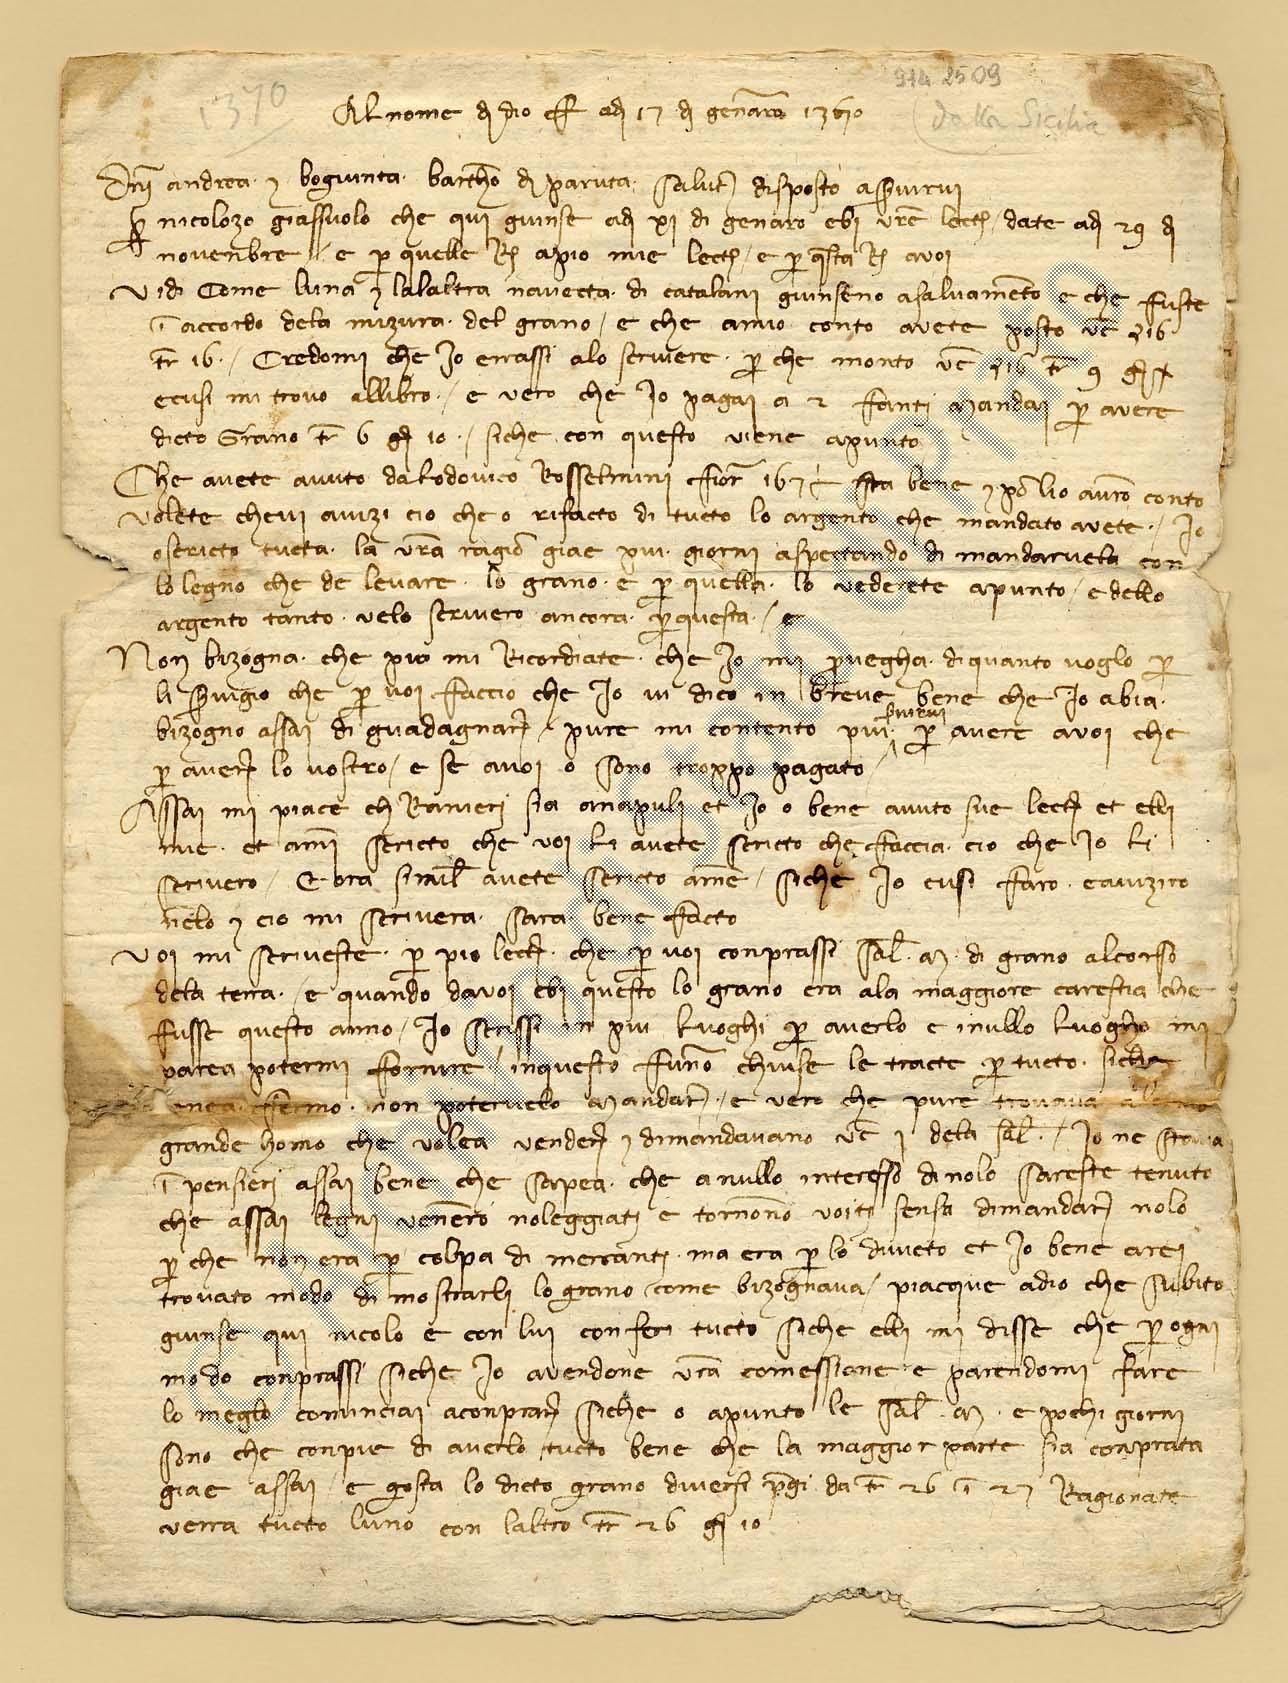 1370
914 2509
Dalla Sicilia
Al nome di dio adi 17 di gennaro 13
andrea bogiunta bartho di paruta salut disposto a
nicolozo giassuolo che qui giunse adi xi di genaro ebi vre lect / date adi 29 di
novenbre / e p quelle R apio mie lect / e p qsta R avoi
vidi Come luna lalaltra navecta di catalani giunseno asalvamento e che fuste
accordo dela mizura del grano / e che amio conto avete posto
tr 16 / Credomi che Io errassi alo scrivere p che monto
ecusi mi trovo allibro / e vero che Io pagai a 2 fanti mandai p avere
dicto Grano tr 6 10 / siche con questo viene apunto
Che avete avuto da Lodovico Rosselmini fior sta bene conto
volete chevi avizi cio che o rifacto di tucto lo argento che mandato avete / Io
oscricto tucta la vra ragio giae giorni aspectando di mandarvela con
lo legno che de levare lo grano e p quella lo vederete apunto / e dello
argento tanto velo scrivero ancora p questa / e
Non bizogna che piu mi Ricordiate che Io mi pvegha di quanto voglo p
li che p voi faccio che Io vi dico in breve bene che Io abia
bizogno assai di guadagnar / pure mi contento piu p avere avoi che
p aver lo vostro / e se avoi o sono troppo pagato /
Assai mi piace ch Ranieri sia anapuli et Io o bene avuto sue lect et elli
mie et ami scricto che voi li avete scricto che faccia cio che Io li
scrivero / Et ora avete scricto ame / siche Io cusi faro eavizero
velo cio mi scrivera sara bene facto
voi mi scriveste p pio lect che p voi conprassi sal m di grano alcorso
dela terra / e quando davoi ebi questo lo grano era ala maggiore carestia che
fusse questo anno / Io scrissi in piu luoghi p averlo e inullo luogho mi
parea potermi fornire / inquesto funo chiuse le tracte p tucto siche
fermo non potervelo mandar / e vero che pure trovava
grande homo che volea vender dimandavano dela sal / Io ne stava
pensieri assai bene che sapea che anullo interesso di nolo sareste tenuto
che assai legni venero noleggiati e tornono voiti senza dimandar nolo
p che non era p colpa di mercanti ma era p lo diveto et Io bene arei
trovato modo di mostrarli lo grano come bizognava / piacque adio che subito
giunse qui nicolo e con lui conferi tucto siche elli mi disse che p ogni
modo conprassi siche Io avendone vra comessione e parendomi fare
lo meglo cominciai aconprar siche o apunto le sal m e pochi giorni
sono che conpie di averlo tucto bene che la maggior parte sia conprata
giae assai / e gosta lo dicto grano diversi pgi da tr 26 27 Ragionate
verra tucto luno con laltro tr 26 10